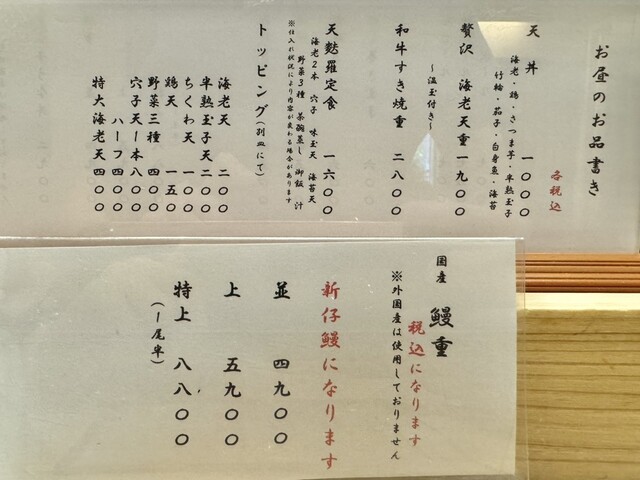 お昼のお品書き
各税込
天丼 一〇〇〇
海老・鶏・さつま芋・半熟玉子
竹輪・茄子・白身魚・海苔
贅沢 海老天重 一九〇〇
〜温玉付き〜
和牛すき焼重 二八〇〇
天麩羅定食 一六〇〇
海老2本 穴子 味玉天 海苔天
野菜3種 茶碗蒸し 御飯 汁
※仕入れ状況により内容が変わる場合があります
トッピング(別皿にて)
海老天 二〇〇
半熟玉子天 二〇〇
ちくわ天 一〇〇
鶏天 一五〇
野菜三種 四〇〇
穴子天一本 八〇〇
ハーフ 四〇〇
特大海老天 四〇〇
国産 鰻重
税込になります
※外国産は使用しておりません
新仔鰻になります
並 四九〇〇
上 五九〇〇
特上 八八〇〇
(一尾半)